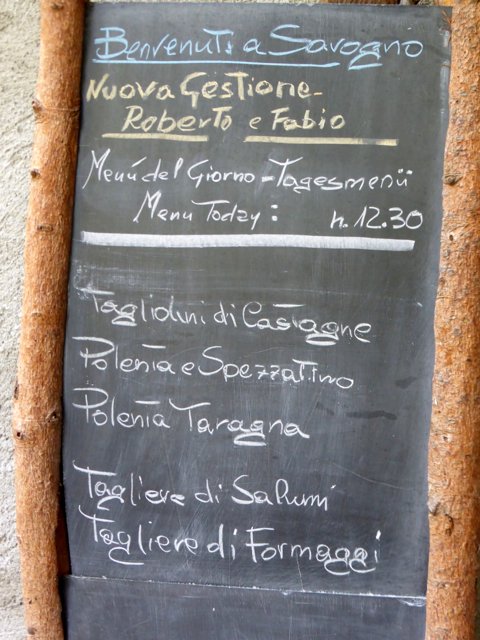 Benvenuti a Savogno
Nuova Gestione-
Roberto e Fabio
Menú del Giorno - Tagesmenü
Menu Today: h. 12.30
Tagliolini di Castagne
Polenta e Spezzatino
Polenta Taragna
Tagliere di Salumi
Tagliere di Formaggi